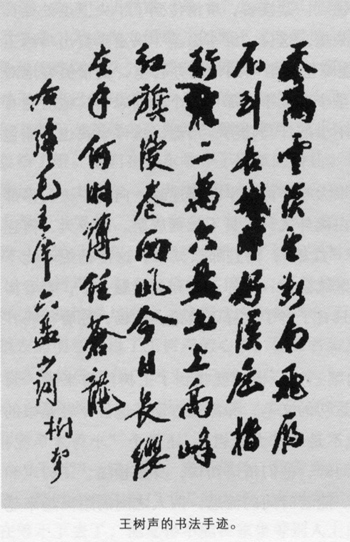 天高雲淡望断南飛雁
不到長城非好漢屈指
行程二萬六盘山上高峰
红旗漫卷西风今日長缨
在手何时缚住蒼龍
右毛主席六盘山词树声
王树声的书法手迹。